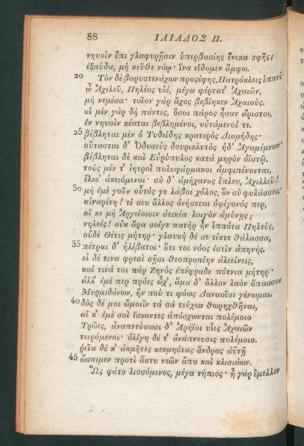 88 ΙΛΙΑΔΟΣ Π.
νηυσὶν ἐπὶ γλαφυρῇσιν ὑπερβασίης ἕνεκα σφῆς;
ἐξαύδα, μὴ κεῦθε νόῳ· ἵνα εἴδομεν ἄμφω.
20 Τὸν δὲ βαρυστενάχων προσέφης, Πατρόκλεις ἱππεῦ·
ὦ Ἀχιλεῦ, Πηλέος υἱέ, μέγα φέρτατ' Ἀχαιῶν,
μὴ νεμέσα· τοῖον γὰρ ἄχος βεβίηκεν Ἀχαιούς.
οἱ μὲν γὰρ δὴ πάντες, ὅσοι πάρος ἦσαν ἄριστοι,
ἐν νηυσὶν κέαται βεβλημένοι, οὐτάμενοί τε.
25 βέβληται μὲν ὁ Τυδείδης κρατερὸς Διομήδης·
οὔτασται δ' Ὀδυσεὺς δουρικλυτὸς ἠδ' Ἀγαμέμνων·
βέβληται δὲ καὶ Εὐρύπυλος κατὰ μηρὸν ὀϊστῷ.
τοὺς μέν τ' ἰητροὶ πολυφάρμακοι ἀμφιπένονται,
ἕλκε' ἀκειόμενοι· σὺ δ' ἀμήχανος ἔπλευ, Ἀχιλλεῦ!
30 μὴ ἐμέ γοῦν οὗτός γε λάβοι χόλος, ὃν σὺ φυλάσσεις,
αἰναρέτη! τί σευ ἄλλος ὀνήσεται ὀψίγονός περ,
αἴ κε μὴ Ἀργείοισιν ἀεικέα λοιγὸν ἀμύνῃς;
νηλεές! οὐκ ἄρα σοίγε πατὴρ ἦν ἱππότα Πηλεύς,
οὐδὲ Θέτις μήτηρ· γλαυκὴ δέ σε τίκτε θάλασσα,
35 πέτραι δ' ἠλίβατοι· ὅτι τοι νόος ἐστὶν ἀπηνής.
εἰ δέ τινα φρεσὶ σῇσι θεοπροπίην ἀλεείνεις,
καί τινά τοι πὰρ Ζηνὸς ἐπέφραδε πότνια μήτηρ·
ἀλλ' ἐμέ περ πρόες ὦχ', ἅμα δ' ἄλλον λαὸν ὄπασσον
Μυρμιδόνων, ἤν πού τι φόως Δαναοῖσι γένωμαι.
40 δὸς δέ μοι ὤμοιϊν τὰ σὰ τεύχεα θωρηχθῆναι,
αἴ κ' ἐμὲ σοὶ ἴσκοντες ἀπόσχωνται πολέμοιο
Τρῶες, ἀναπνεύσωσι δ' Ἀρήϊοι υἷες Ἀχαιῶν
τειρόμενοι· ὀλίγη δέ τ' ἀνάπνευσις πολέμοιο.
ῥεῖα δέ κ' ἀκμῆτες κεκμηότας ἄνδρας ἀϋτῇ
45 ὤσαιμεν προτὶ ἄστυ νεῶν ἄπο καὶ κλισιάων.
Ὣς φάτο λισσόμενος, μέγα νήπιος· ἦ γὰρ ἔμελλεν